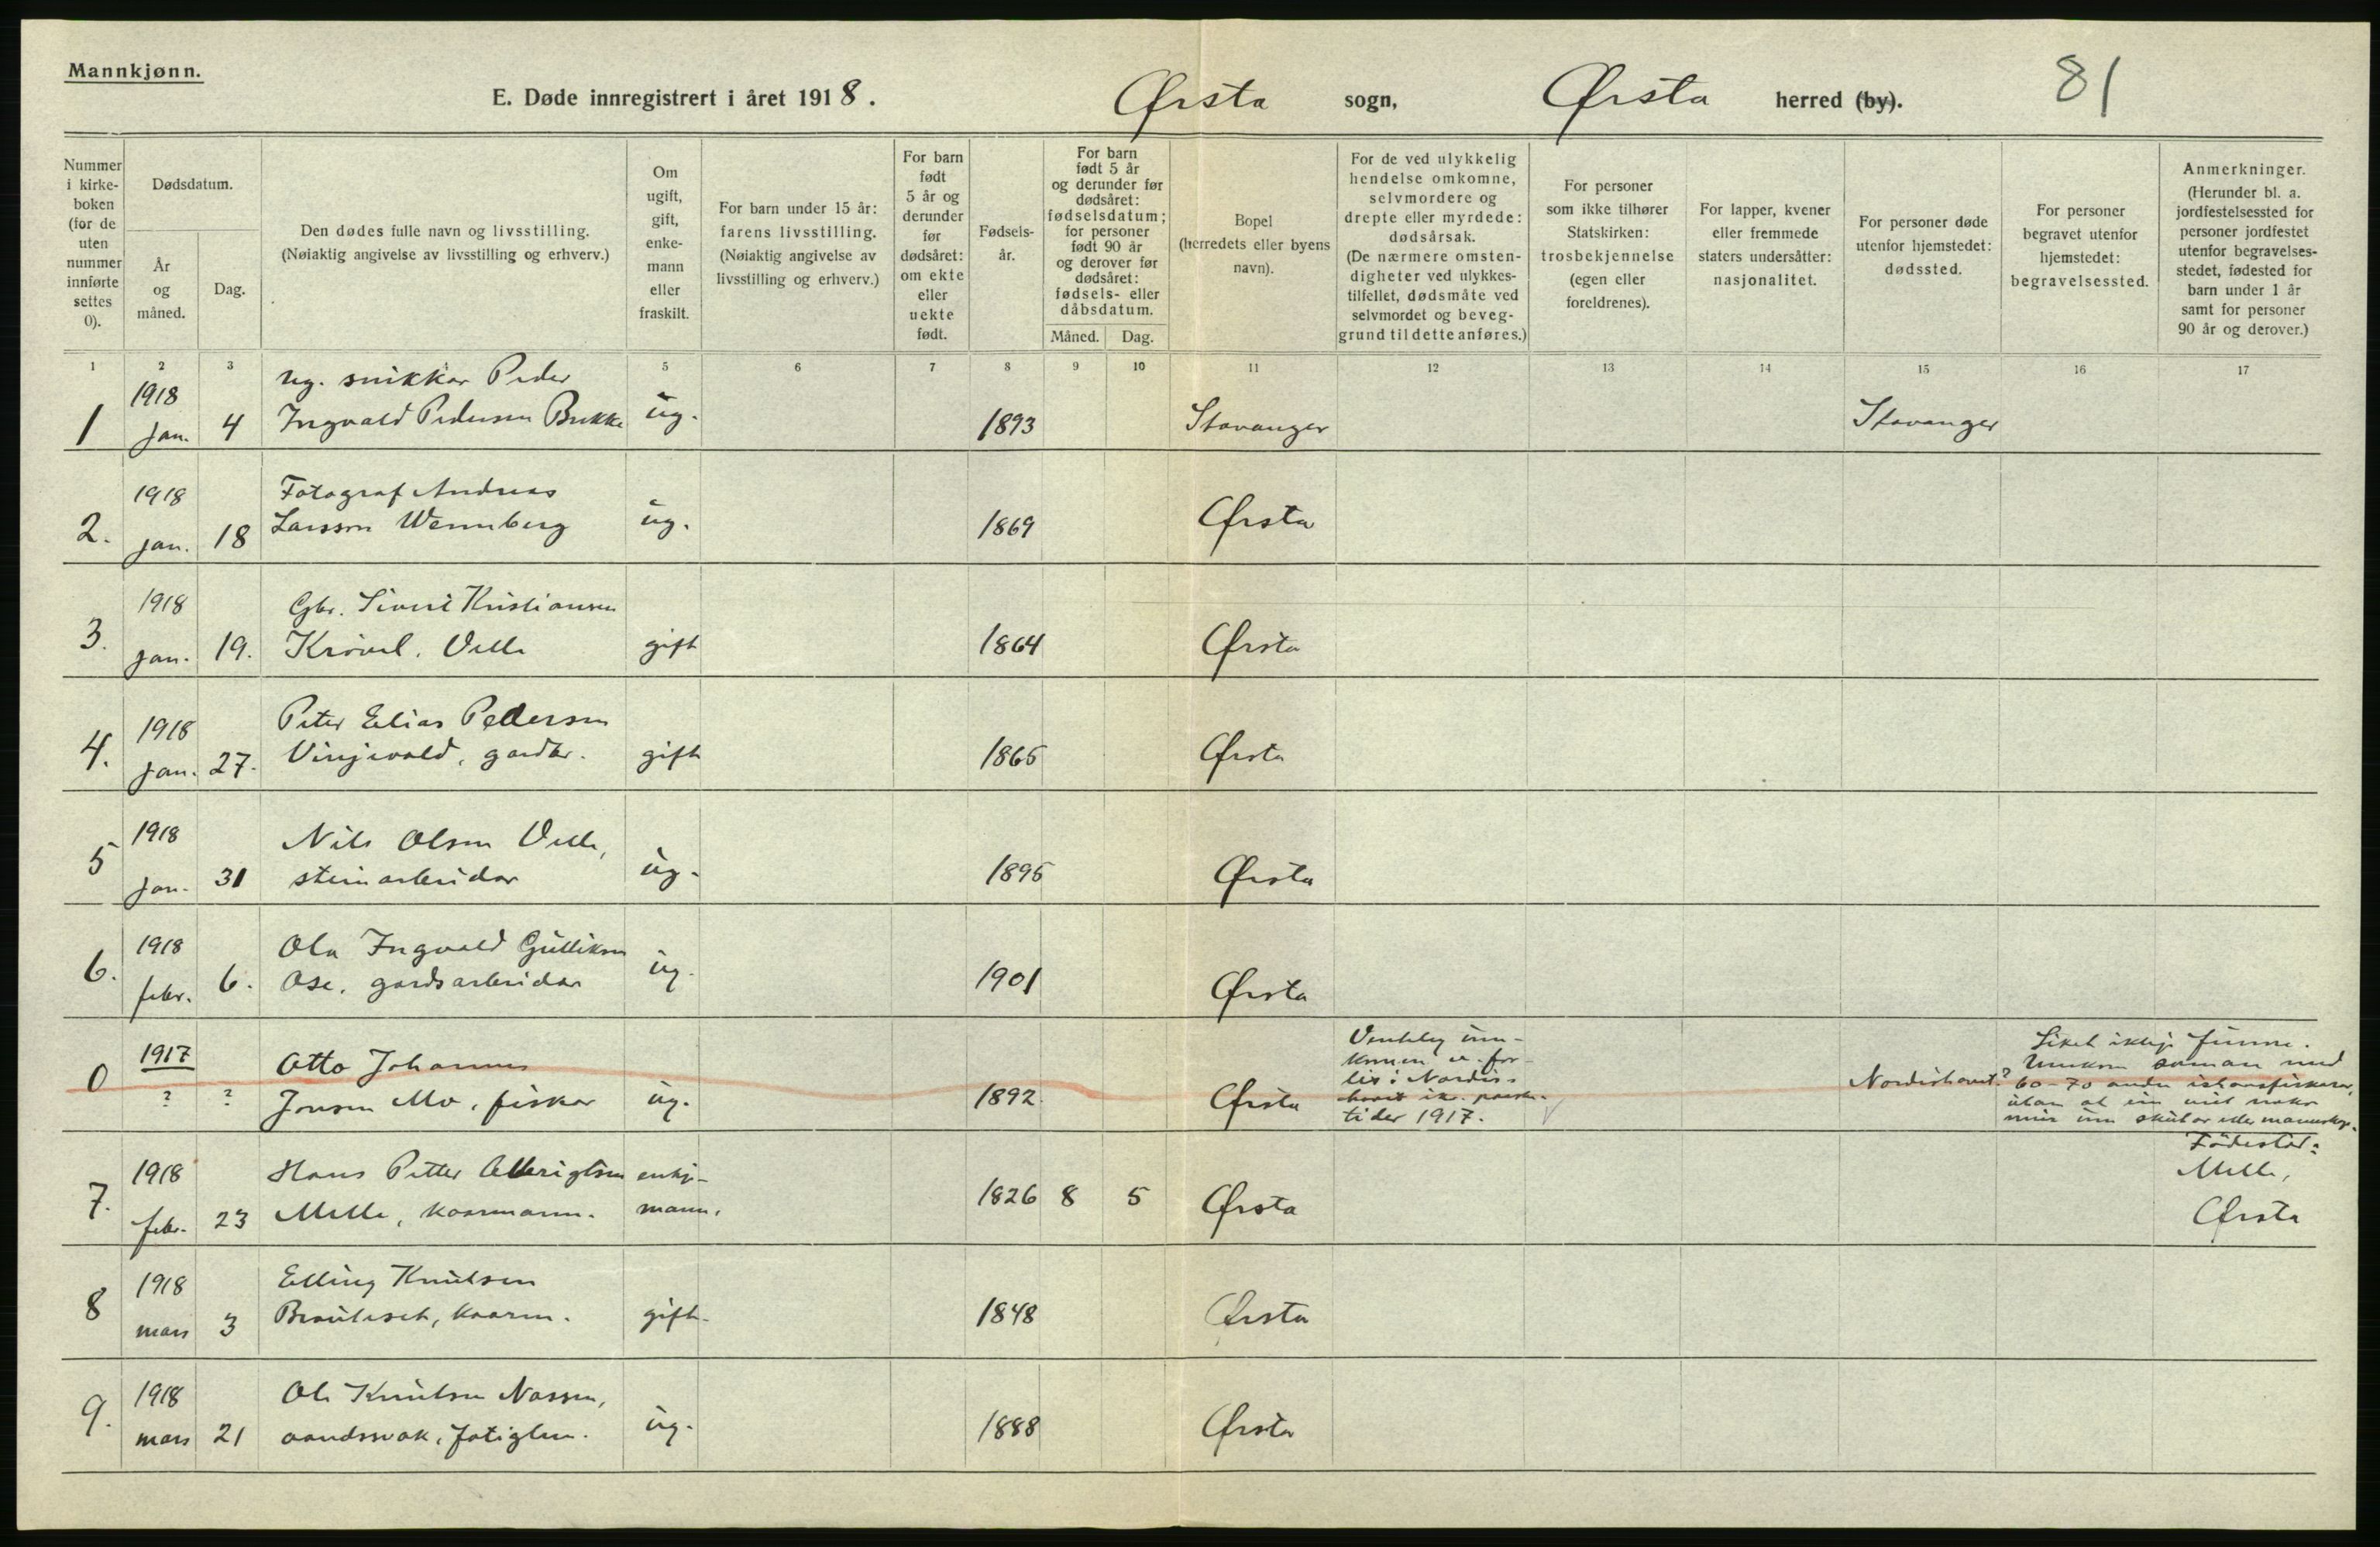 Mannkjønn.
E. Døde innregistrert i året 1918. Ørsta sogn, Ørsta herred (by). 81
Nummer i kirke-boken (for de uten nummer innførte settes 0).
Dødsdatum.
År og måned.
Dag.
Den dødes fulle navn og livsstilling.
(Nøiaktig angivelse av livsstilling og erhverv.)
Om ugift, gift, enke-mann eller fraskilt.
For barn under 15 år: farens livsstilling.
(Nøiaktig angivelse av livsstilling og erhverv.)
For barn født 5 år og derunder før dødsåret: om ekte eller uekte født.
Fødsels-år.
For barn født 5 år og derunder før dødsåret: fødselsdatum; for personer født 90 år og derover før dødsåret: fødsels- eller dåbsdatum.
Måned. Dag.
Bopel (herredets eller byens navn).
For de ved ulykkelig hendelse omkomne, selvmordere og drepte eller myrdede: dødsårsak.
(De nærmere omsten-digheter ved ulykkes-tilfellet, dødsmåte ved selvmordet og beveg-grund til dette anføres.)
For personer som ikke tilhører Statskirken: trosbekjennelse (egen eller foreldrenes).
For lapper, kvener eller fremmede staters undersåtter: nasjonalitet.
For personer døde utenfor hjemstedet: dødssted.
For personer begravet utenfor hjemstedet: begravelsessted.
Anmerkninger.
(Herunder bl. a. jordfestelsessted for personer jordfestet utenfor begravelses-stedet, fødested for barn under 1 år samt for personer 90 år og derover.)
1 2 3 5 6 7 8 9 10 11 12 13 14 15 16 17
ug. snikkar Peder
1 1918 jan. 4 Ingvald Pedersen Brekke ug. 1893 Stavanger Stavanger
Fotograf Andreas
2. 1918 jan. 18 Larssen Wennberg ug. 1869 Ørsta
Gbr. Sivert Kristiansen
3. 1918 jan. 19. Velle gift 1864 Ørsta
Peter Elias Pedersen
4. 1918 jan. 27. gardbr. gift 1865 Ørsta
Nils Olsen Velle,
5 1918 jan. 31 steinarbeidar ug. 1895 Ørsta
Ola Ingvald Gulliksen
6. 1918 febr. 6. Ose, gardsarbeidar ug. 1901 Ørsta
Otto Johannes
0 1917 ? ? Jonsen Mo, fiskar ug. 1892 Ørsta
tider 1917.
Nordishavet?
Liket ikkje funne.
saman med
60-70 andre ishavsfiskarar,
Hans Petter
7. 1918 febr. 23 Melle, kaarmann. enkje-mann. 1826 8 5 Ørsta
Fødestad:
Melle,
Ørsta
Elling Knutsen
8 1918 mars 3 kaarm. gift. 1848 Ørsta
Ole Knutsen Nassen,
9. 1918 mars 21 aandssvak, fatiglem. ug. 1888 Ørsta